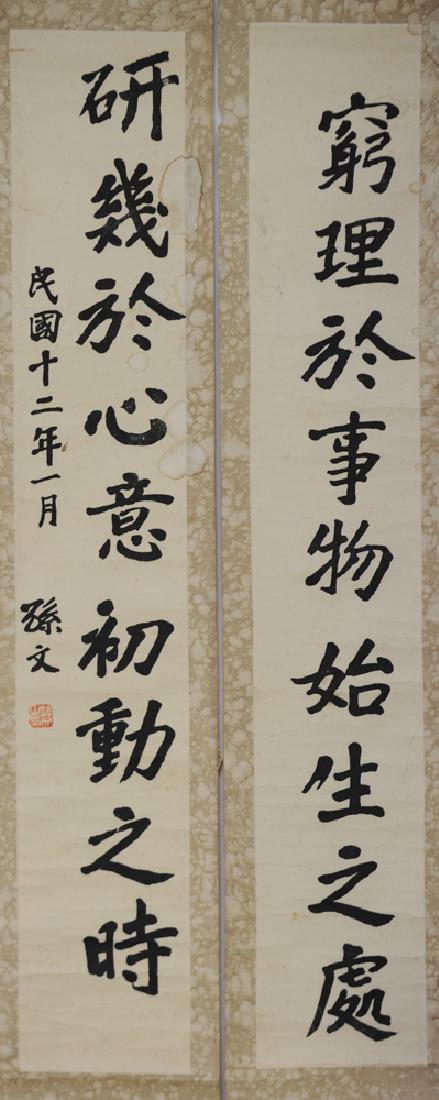 窮理於事物始生之處
研幾於心意初動之時
民國十二年一月
孫文